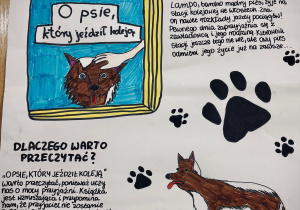 O psie,
który jeździł koleją
Lampo, bardzo mądry pies, żyje na
stacji kolejowej we Włoszech. Zna
on nawet rozkłady jazdy pociągów!
Pewnego dnia zaprzyjaźnia się z
zawiadowcą i jego rodziną.
stacji jeszcze tego nie wie, ale ów pies
odmieni jego życie już na zawsze...
DLACZEGO WARTO
PRZECZYTAĆ?
"O PSIE, KTÓRY JEŹDZIŁ KOLEJĄ"
warto przeczytać, ponieważ uczy
nas o mocy przyjaźni. Książka
jest wzruszająca i przypomina
nam, że przyjaciel nie zostanie